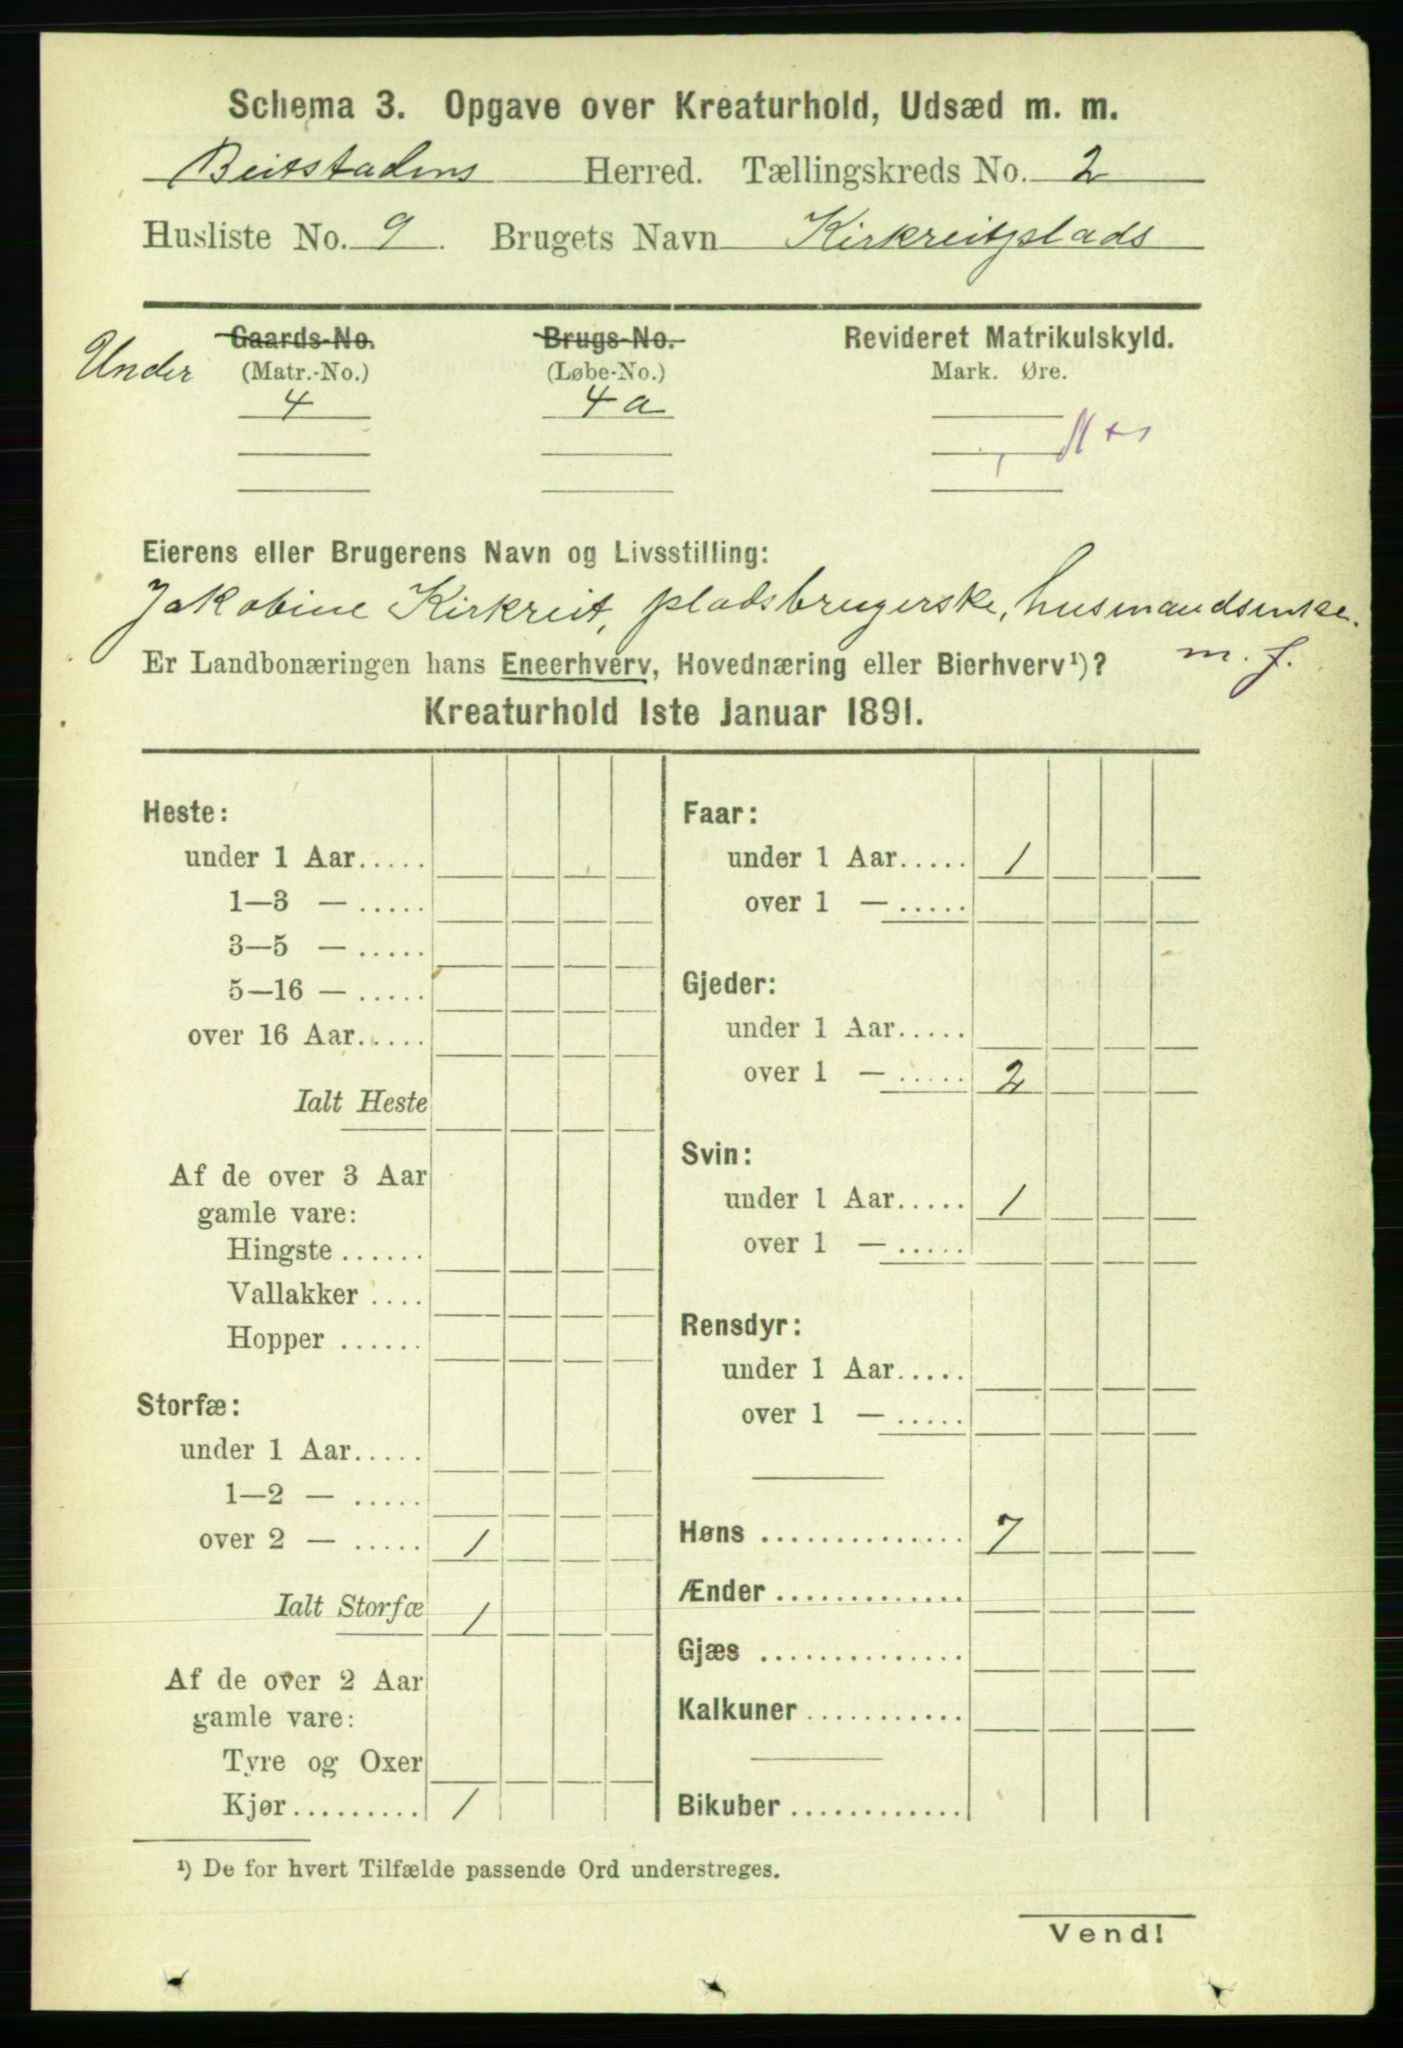 Schema 3. Opgave over Kreaturhold, Udsæd m. m.
Beitstadens Herred. Tællingskreds No. 2
Husliste No. 9. Brugets Navn Kirkreitplads
Under Gaards-No. Brugs-No. Revideret Matrikulskyld.
(Matr.-No.) (Løbe-No.) Mark. Øre.
4 4 a
Eierens eller Brugerens Navn og Livsstilling:
Jakobine Kirkreit, pladsbrugerske, husmandsenke.
Er Landbonæringen hans Eneerhverv, Hovednæring eller Bierhverv¹)? m. f.
Kreaturhold 1ste Januar 1891.
Heste:
under 1 Aar.....
1—3 — .....
3—5 — .....
5—16 — .....
over 16 Aar.....
Ialt Heste
Af de over 3 Aar
gamle vare:
Hingste ......
Vallakker ....
Hopper ......
Storfæ:
under 1 Aar.....
1—2 — .....
over 2 — ..... 1
Ialt Storfæ 1
Af de over 2 Aar
gamle vare:
Tyre og Oxer
Kjør......... 1
Faar:
under 1 Aar..... 1
over 1 — .....
Gjeder:
under 1 Aar.....
over 1 — ..... 2
Svin:
under 1 Aar..... 1
over 1 — .....
Rensdyr:
under 1 Aar.....
over 1 — .....
Høns .............. 7
Ænder .............
Gjæs ..............
Kalkuner ...........
Bikuber ............
¹) De for hvert Tilfælde passende Ord understreges.
Vend!